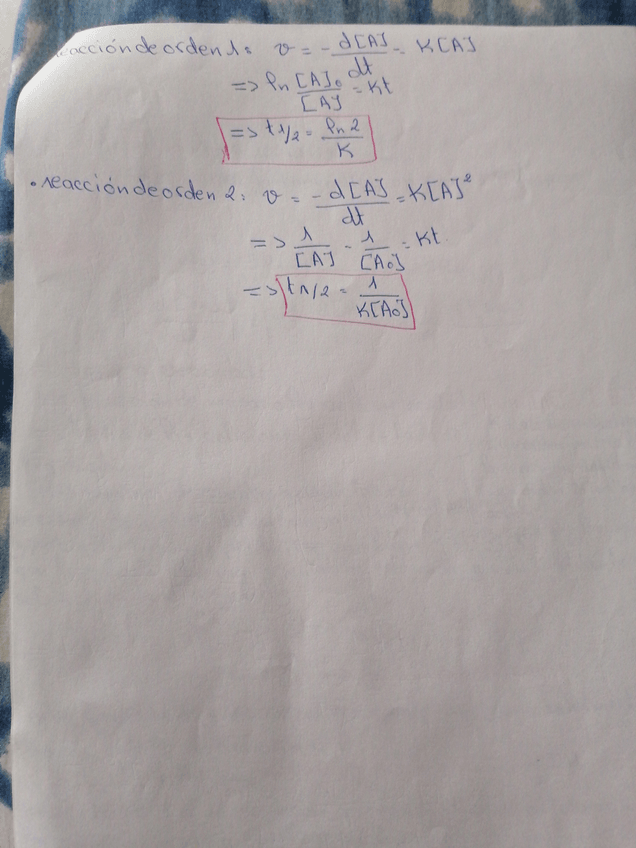 reacción de orden 1: v = -d[A]/dt = K[A]
=> ln [A]₀/[A] = Kt
=> t1/2 = ln 2/K
• reacción de orden 2: v = -d[A]/dt = K[A]²
=> 1/[A] - 1/[A₀] = Kt
=> t1/2 = 1/K[A₀]